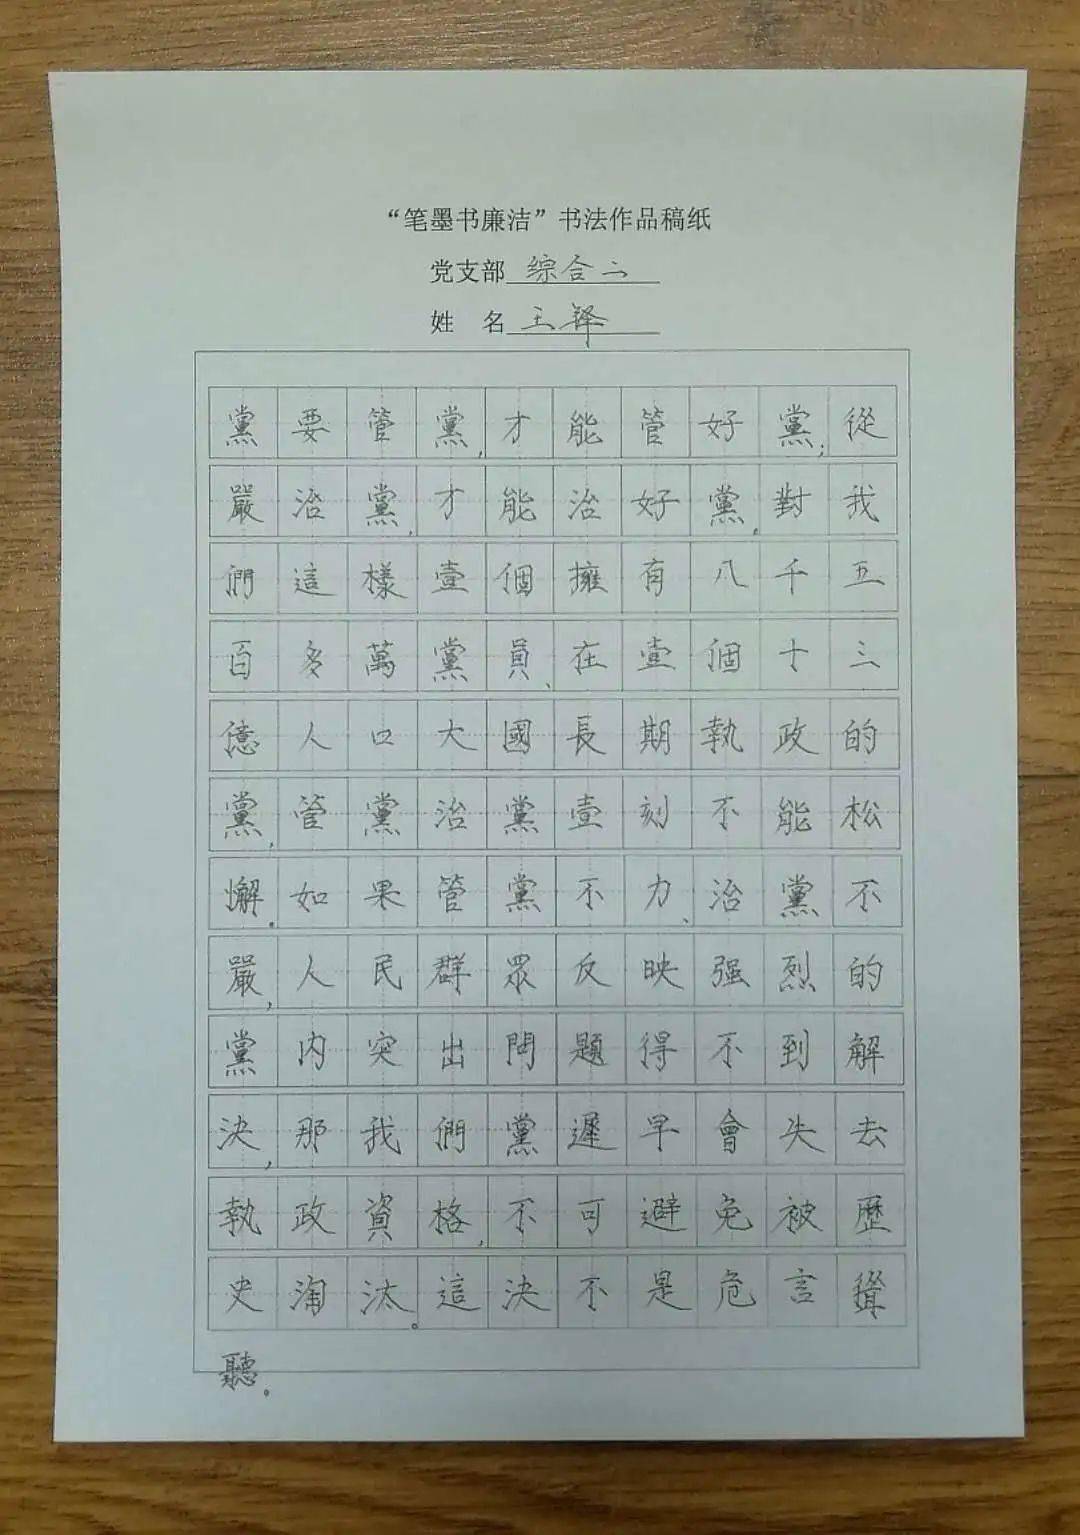 “笔墨书廉洁”书法作品稿纸
党支部 综合二
姓 名 王铎
黨要管黨,才能管好黨;從
嚴治黨,才能治好黨。對我
們這樣壹個擁有八千五
百多萬黨員、在壹個十三
億人口大國長期執政的
黨,管黨治黨壹刻不能松
懈。如果管黨不力、治黨不
嚴,人民群眾反映强烈的
黨内突出問題得不到解
決,那我們黨遲早會失去
執政資格,不可避免被歷
史淘汰。這決不是危言聳
聽。